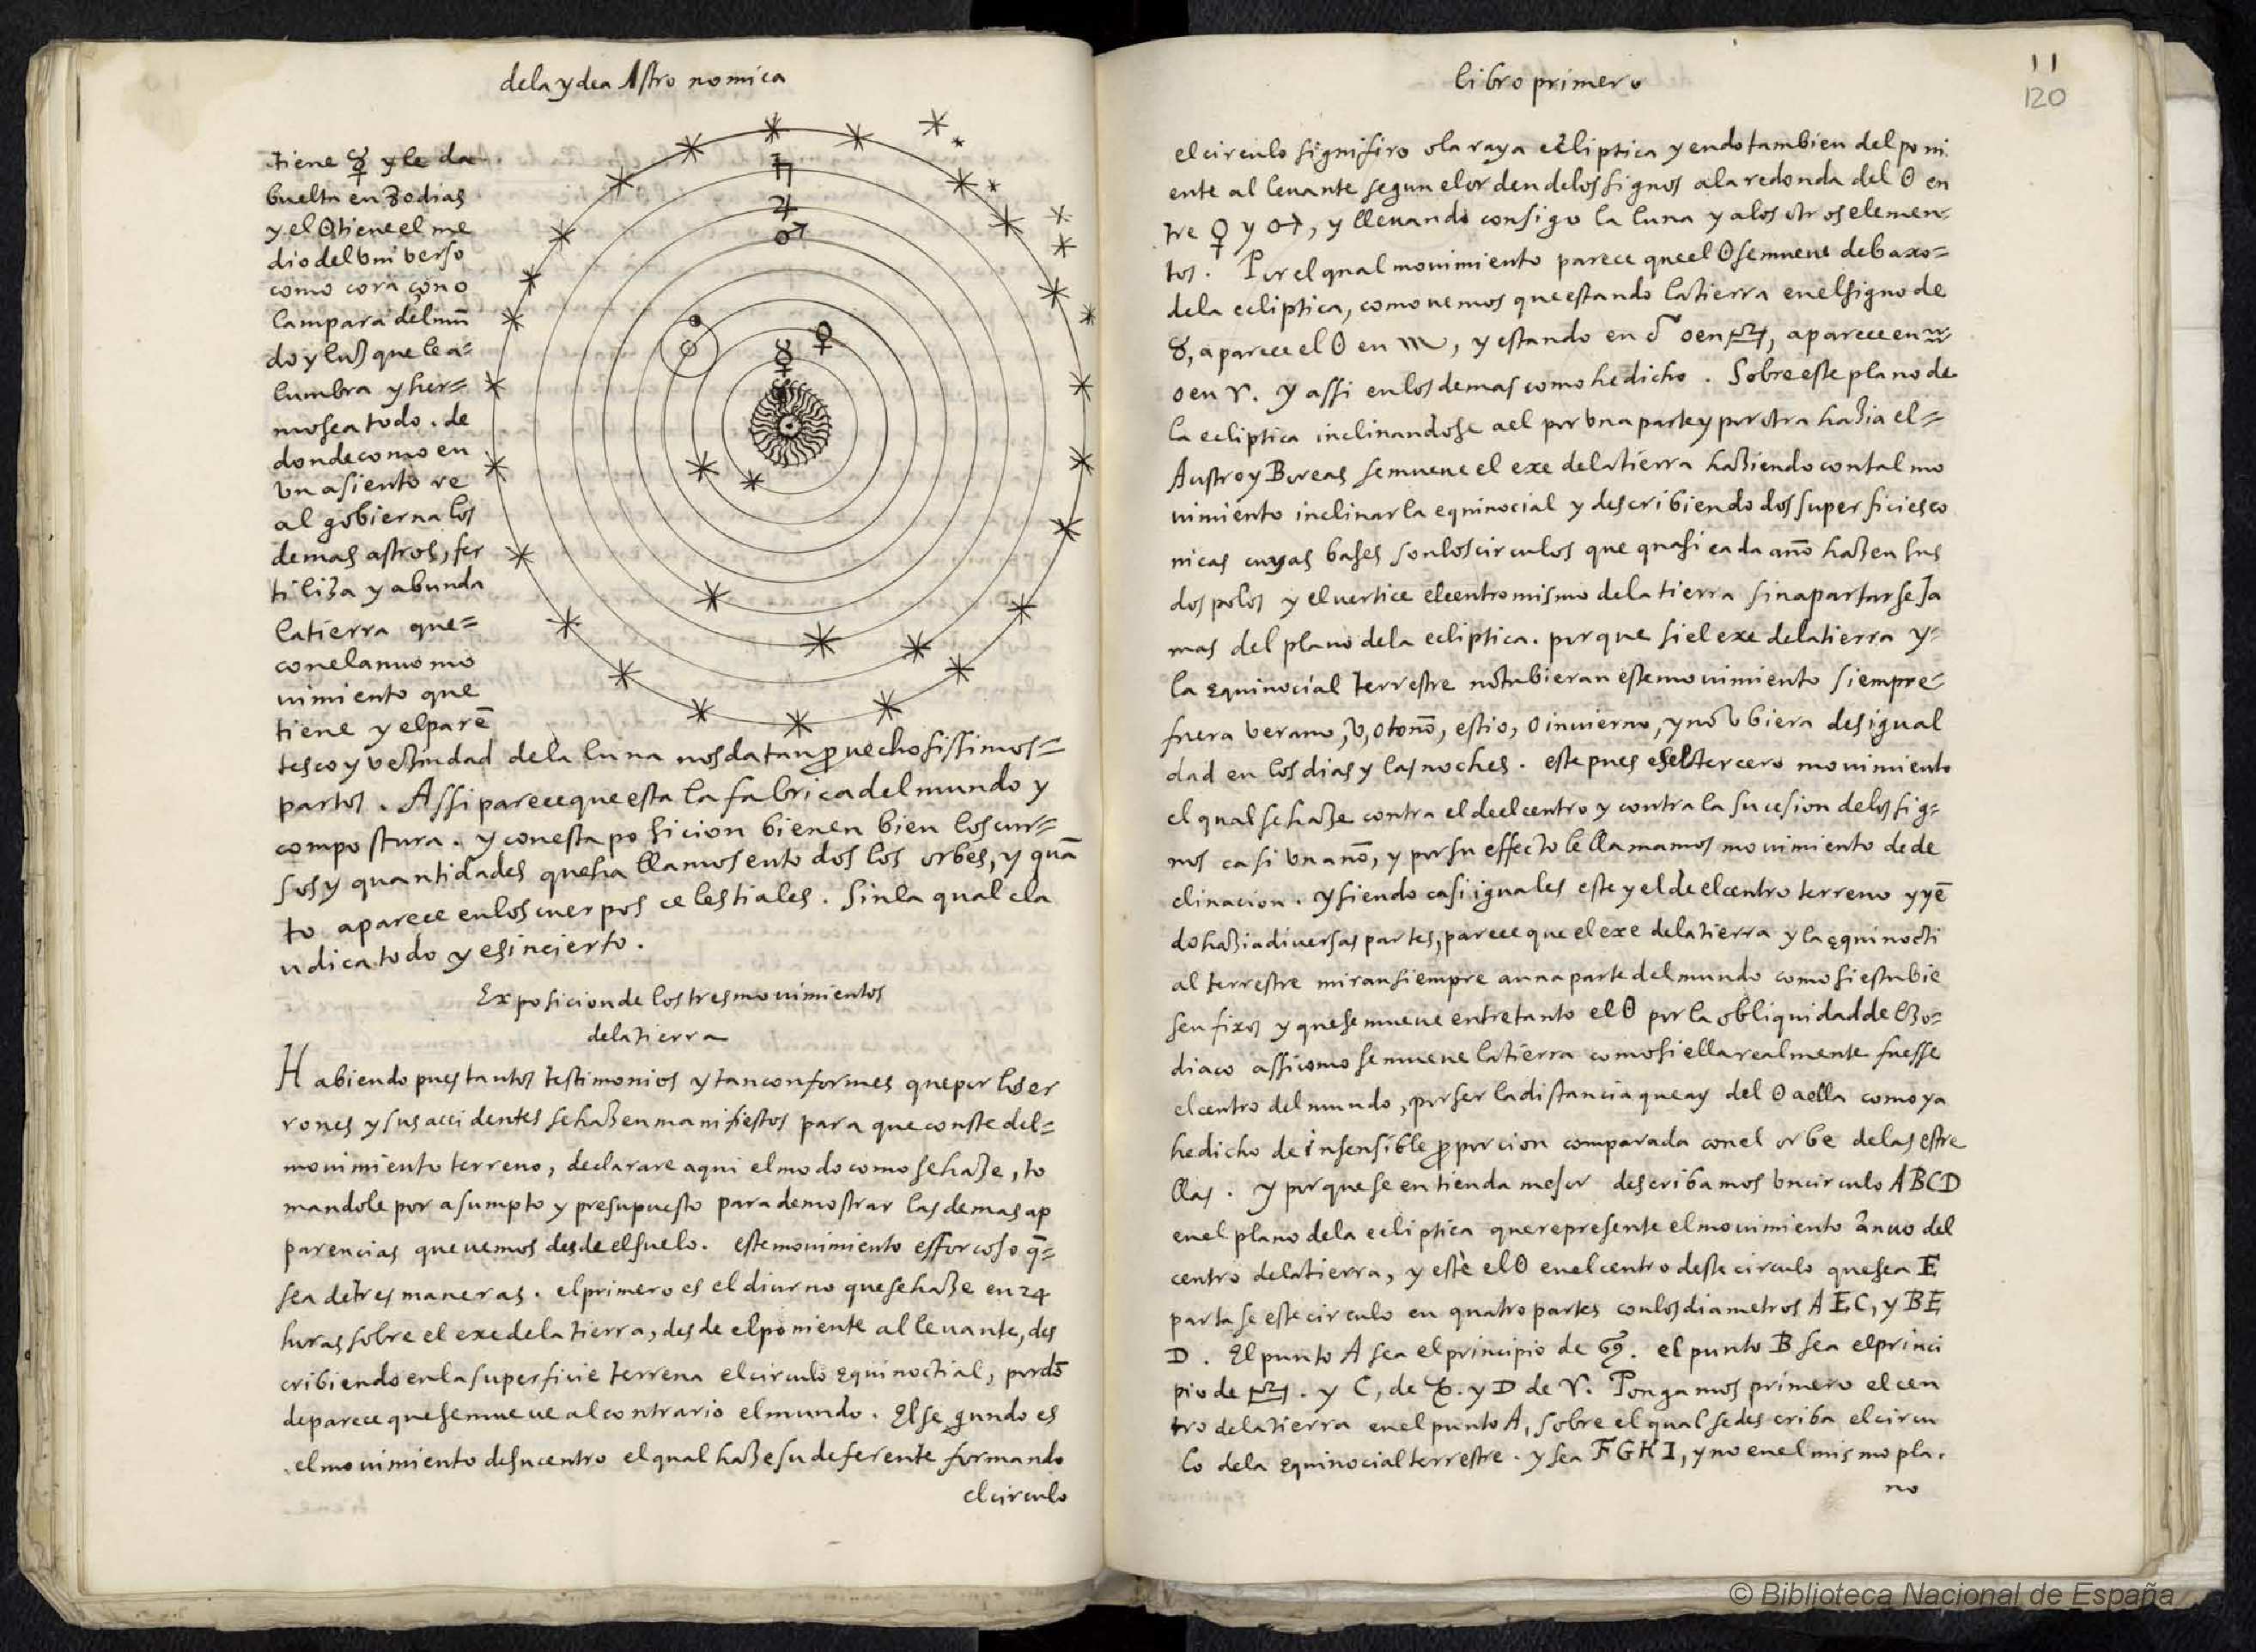 dela ydea Astronomica
tiene ☿ y le da
buelta en 80 dias
y el ☉ tiene el me
dio del vniverso
como coraçon o
lampara del mũ
do y luz que le a=
lumbra y her=
mosea todo. de
donde como en
vn asiento re
al gobierna los
demas astros, fer
tiliza y abunda
la tierra que=
con el anuo mo
uimiento que
tiene y el parẽ
tesco y vezindad dela luna nos da tan ꝓuechosissimos=
partos. Assi parece que esta la fabrica del mundo y
compostura. y con esta posicion bienen bien los cur=
sos y quantidades que hallamos en todos los orbes, y quã
to aparece en los cuerpos celestiales. sin la qual cla
udica todo y es incierto.
Exposicion de los tres mouimientos
dela tierra
Habiendo pues tantos testimonios y tan conformes que por los er
rones y sus accidentes se hazen manifiestos para que conste del=
mouimiento terreno, declarare aqui el modo como se haze, to
mandole por asumpto y presupuesto para demostrar las demas ap
parencias que uemos desde el suelo. este mouimiento es forcoso q̃=
sea de tres maneras. el primero es el diurno que se haze en 24
horas sobre el exe dela tierra, desde el poniente al leuante, des
cribiendo en la superficie terrena el circulo equinoctial, por dõ
de parece que se mueue al contrario el mundo. El segundo es
el mouimiento de su centro el qual haze su deferente formando
el circulo
libro primero
11
120
el circulo signifiro o la raya ecliptica yendo tambien del poni
ente al leuante segun el orden delos signos a la redonda del ☉ en
tre ♀ y ♂, y lleuando consigo la luna y a los otros elemen=
tos. Por el qual mouimiento parece que el ☉ se mueue debaxo=
dela ecliptica, como uemos que estando la tierra en el signo de
♉, aparece el ☉ en ♏, y estando en ♌ o en ♎, aparece en ♒
o en ♈. y assi en los demas como he dicho. Sobre este plano de
la ecliptica inclinandose a el por vna parte y por otra hazia el=
Austro y Boreas se mueue el exe dela tierra haziendo con tal mo
uimiento inclinar la equinocial y describiendo dos superficies co
nicas cuyas bases son los circulos que quasi cada año hazen sus
dos polos y el uertice el centro mismo dela tierra sin apartarse Ja
mas del plano dela ecliptica. porque si el exe dela tierra y=
la equinocial terrestre no tubieran este mouimiento siempre=
fuera verano, v, otoño, estio, o inuierno, y no vbiera desigual
dad en los dias y las noches. este pues es el tercero mouimiento
el qual se haze contra el de el centro y contra la sucesion delos sig=
nos casi vn año, y por su effecto le llamamos mouimiento de de
clinacion. y siendo casi iguales este y el de el centro terreno y yẽ
do hazia diuersas partes, parece que el exe dela tierra y la equinocti
al terrestre miran siempre a una parte del mundo como si estubie
sen fixos y que se mueue entretanto el ☉ por la obliquidad de el zo=
diaco assi como se mueue la tierra como si ella realmente fuesse
el centro del mundo, por ser la distancia que ay del ☉ a ella como ya
he dicho de insensible ꝓporcion comparada con el orbe delas estre
llas. y porque se entienda mejor describamos vn circulo ABCD
en el plano dela ecliptica que represente el mouimiento anuo del
centro dela tierra, y estè el ☉ en el centro deste circulo que sea E
partase este circulo en quatro partes con los diametros AEC, y BE
D. El punto A sea el principio de ♋. el punto B sea el princi
pio de ♎. y C, de ♑. y D de ♈. Pongamos primero el cen
tro dela tierra en el punto A, sobre el qual se describa el circu
lo dela equinocial terrestre. y sea FGHI, y no en el mismo pla.
no
© Biblioteca Nacional de España